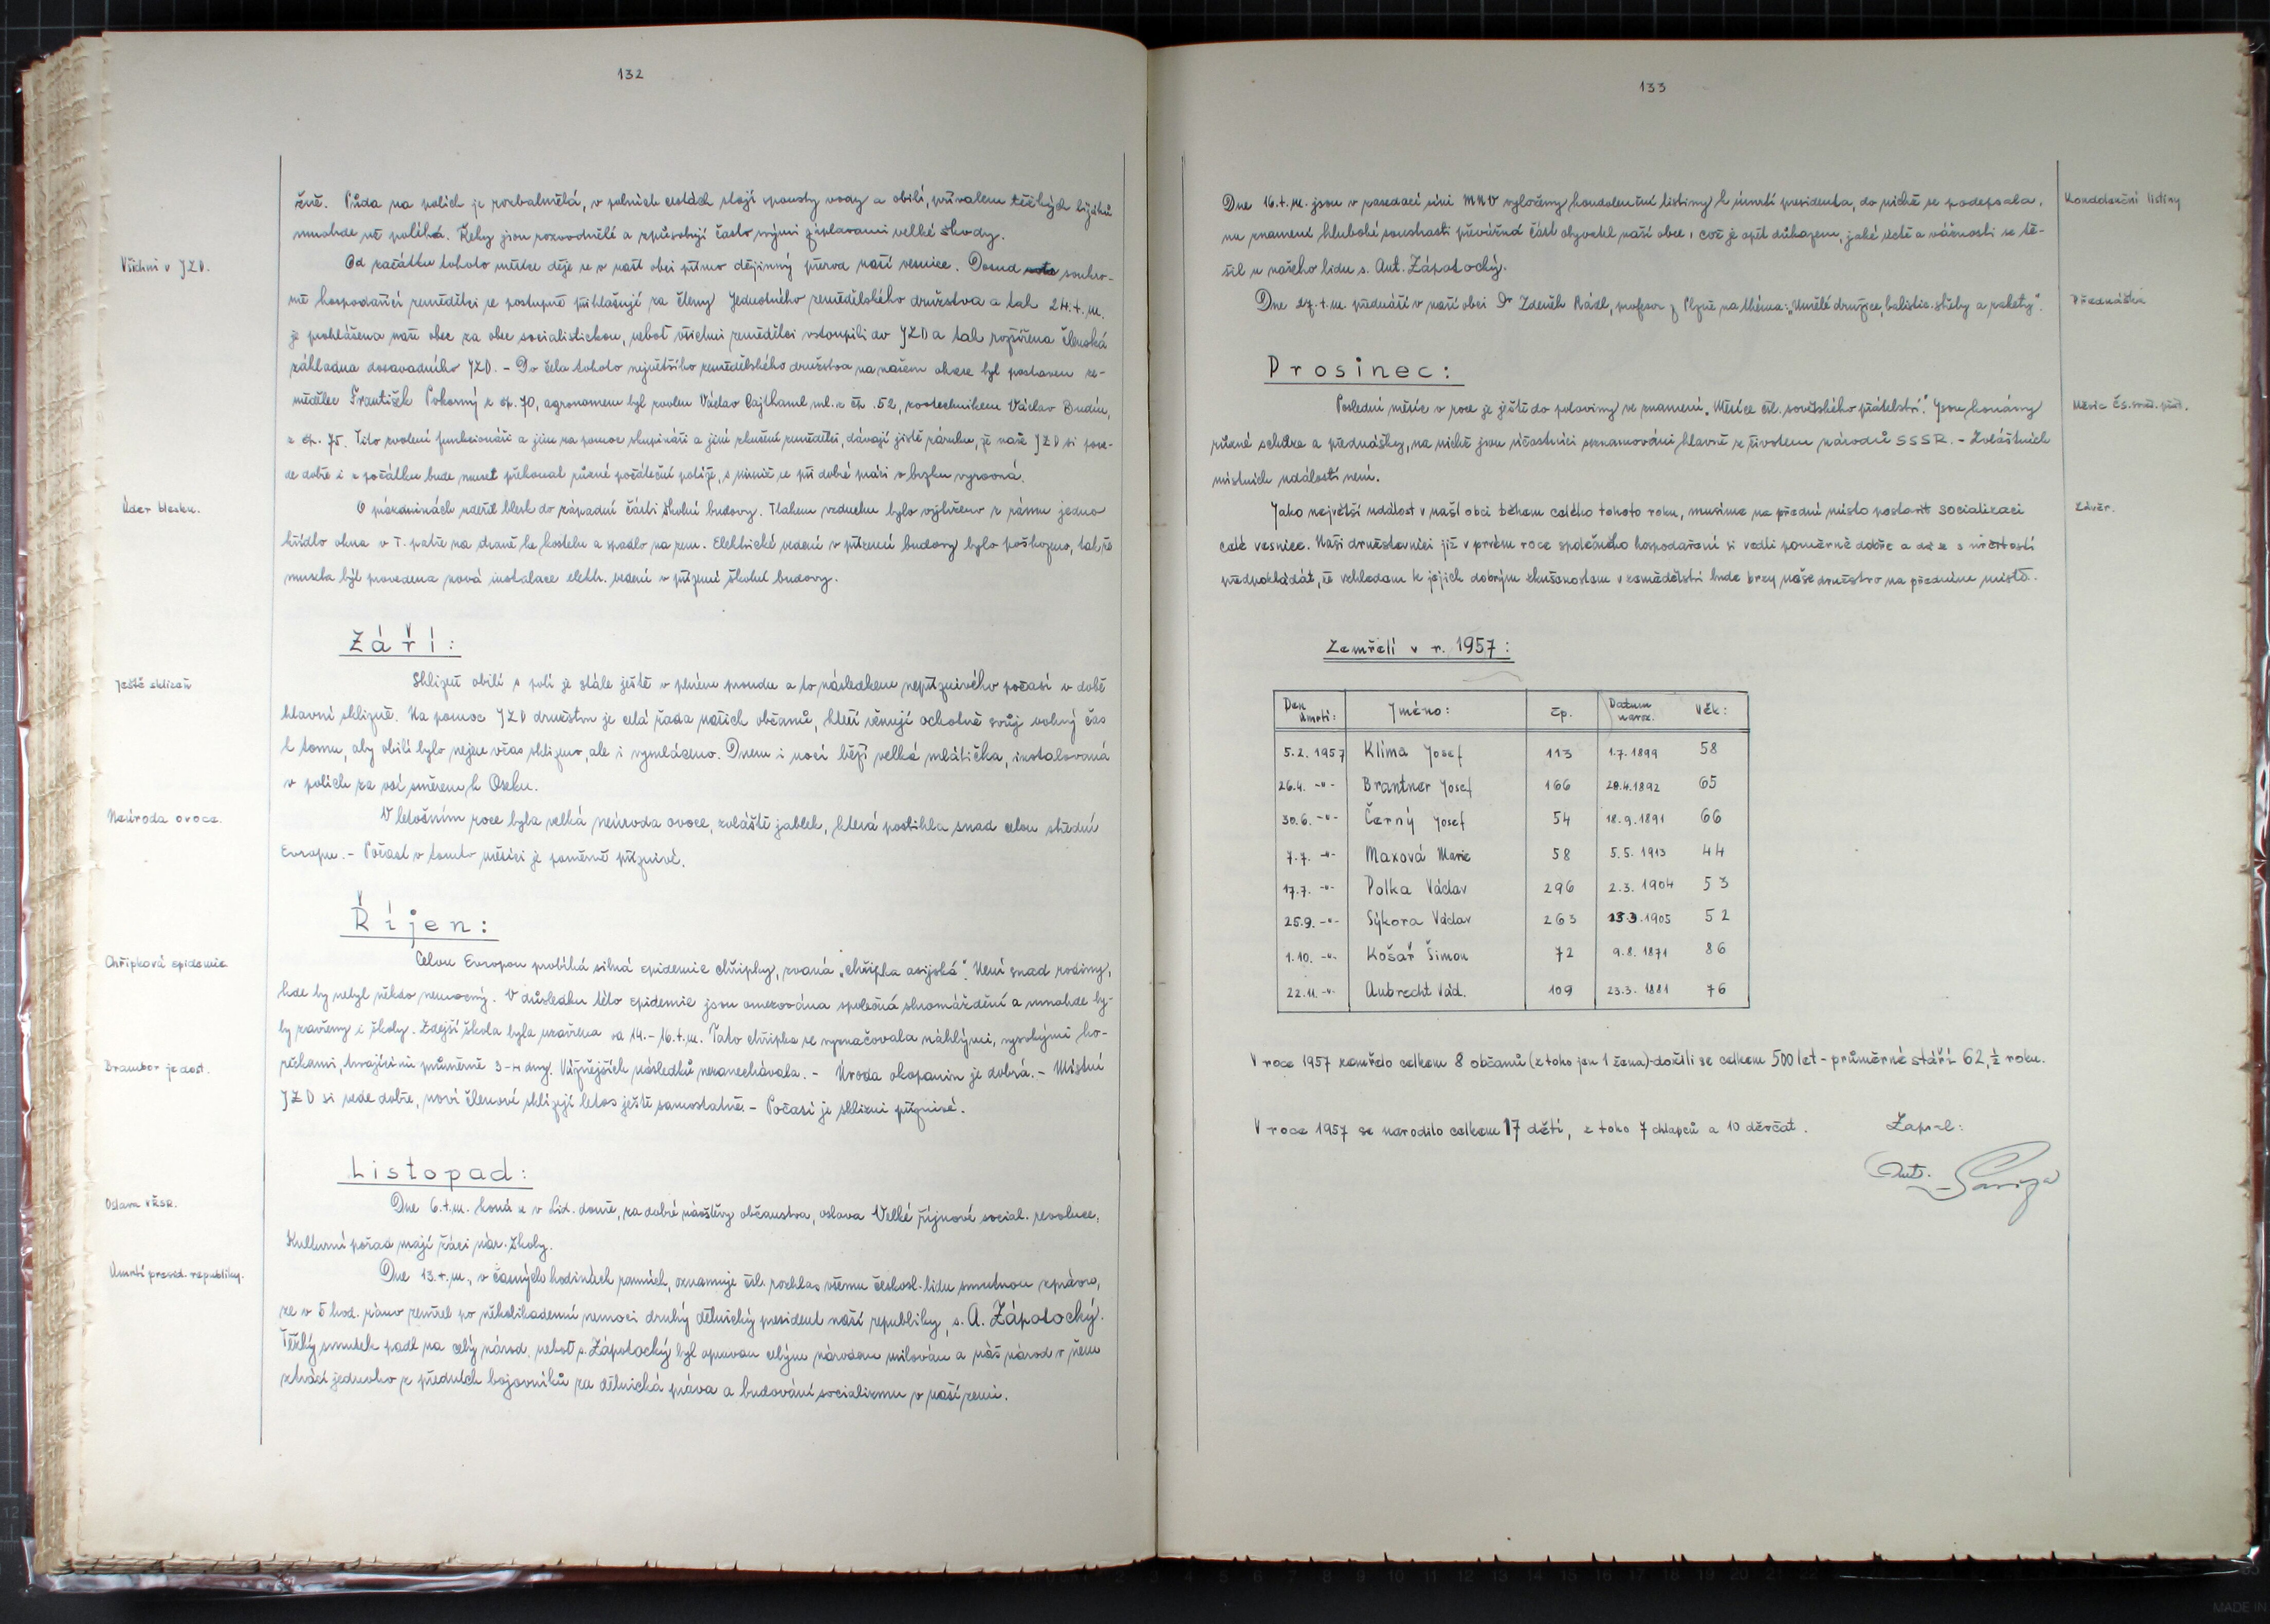 132
žně. Půda na polích je rozbahnělá, v polních cestách stojí spousty vody a obilí, přívalem těžkých lijáků
mnohde už poléhá. Řeky jsou rozvodnělé a způsobují často svými záplavami velké škody.
Všichni v JZD.
Od začátku tohoto měsíce děje se v naší obci přímo dějinný přerod naší vesnice. Dosud soukro-
mě hospodařící zemědělci se postupně přihlašují za členy Jednotného zemědělského družstva a tak 24.t.m.
je prohlášena naše obec za obec socialistickou, neboť všichni zemědělci vstoupili do JZD a tak rozšířena členská
základna dosavadního JZD. - Do čela tohoto největšího zemědělského družstva na našem okrese byl postaven ze-
mědělec František Pokorný z čp. 70, agronomem byl zvolen Václav Cajthaml ml. z čp. 52, zootechnikem Václav Budín,
z čp. 75. Tito zvolení funkcionáři a jim na pomoc skupináři a jiní zkušení zemědělci, dávají jistě záruku, že naše JZD si pove-
de dobře i z počátku bude muset překonat různé počáteční potíže, s nimiž se při dobré práci v brzku vyrovná.
Úder blesku.
O prázdninách udeřil blesk do západní části školní budovy. Tlakem vzduchu bylo vyvrženo z rámu jedno
křídlo okna v I. patře na straně ke kostelu a spadlo na zem. Elektrické vedení v přízemí budovy bylo poškozeno, takže
musela být provedena nová instalace elektr. vedení v přízemí školní budovy.
Září:
Ještě sklizeň
Sklizeň obilí s polí je stále ještě v plném proudu a to následkem nepříznivého počasí v době
hlavní sklizně. Na pomoc JZD družstvu je celá řada našich občanů, kteří věnují ochotně svůj volný čas
k tomu, aby obilí bylo nejen včas sklizeno, ale i vymláceno. Dnem i nocí běží velká mlátička, instalovaná
v polích za vsí směrem k Oseku.
Neúroda ovoce.
V letošním roce byla velká neúroda ovoce, zvláště jablek, která postihla snad celou střední
Evropu. - Počasí v tomto měsíci je poměrně příznivé.
Říjen:
Chřipková epidemie
Celou Evropou probíhá silná epidemie chřipky, zvaná „chřipka asijská". Není snad rodiny,
kde by nebyl někdo nemocný. V důsledku této epidemie jsou omezována společná shromáždění a mnohde by-
ly zavřeny i školy. Zdejší škola byla uzavřena od 14.-16.t.m. Tato chřipka se vyznačovala náhlými, vysokými ho-
rečkami, trvajícími průměrně 3-4 dny. Vážnějších následků nezanechávala. - Úroda okopanin je dobrá. - Místní
Brambor je dost.
JZD si vede dobře, noví členové sklízejí letos ještě samostatně. - Počasí je sklizni příznivé.
Listopad:
Oslava VŘSR.
Dne 6.t.m. koná se v Lid. domě, za dobré návštěvy občanstva, oslava Velké říjnové social. revoluce.
Kulturní pořad mají žáci nár. školy.
Úmrtí presid. republiky.
Dne 13.t.m., v časných hodinách ranních, oznamuje čsl. rozhlas všemu českosl. lidu smutnou zprávu,
že v 5 hod. ráno zemřel po několikadenní nemoci druhý dělnický president naší republiky, s. A. Zápotocký.
Těžký smutek padl na celý národ, neboť s. Zápotocký byl opravdu celým národem milován a náš národ v něm
ztrácí jednoho z předních bojovníků za dělnická práva a budování socialismu v naší zemi.
133
Dne 16.t.m. jsou v zasedací síni MNV vyloženy kondolenční listiny k úmrtí presidenta, do nichž se podepsala,
Kondolenční listiny
na znamení hluboké soustrasti převážná část obyvatel naší obce, což je opět důkazem, jaké úctě a vážnosti se tě-
šil u našeho lidu s. Ant. Zápotocký.
Dne 27.t.m. přednáší v naší obci Dr Zdeněk Rádl, profesor z Plzně na théma: „Umělé družice, balistic. střely a rakety".
Přednáška
Prosinec:
Poslední měsíc v roce je ještě do poloviny ve znamení „Měsíce čsl. sovětského přátelství". Jsou konány
Měsíc čs. sově. přát.
různé schůze a přednášky, na nichž jsou účastníci seznamováni hlavně se životem národů SSSR. - Zvláštních
místních událostí není.
Jako největší událost v naší obci během celého tohoto roku, musíme na přední místo postavit socialisaci
Závěr.
celé vesnice. Naši družstevníci již v prvém roce společného hospodaření si vedli poměrně dobře a dá se s určitostí
předpokládat, že vzhledem k jejich dobrým zkušenostem v zemědělství bude brzy naše družstvo na předním místě.
Zemřelí v r. 1957:
Den úmrtí: Jméno: čp. Datum naroz. Věk:
5.2. 1957 Klíma Josef 113 1.7.1899 58
26.4. -"- Brantner Josef 166 28.4.1892 65
30.6. -"- Černý Josef 54 18.9.1891 66
7.7. -"- Maxová Marie 58 5.5.1913 44
17.7. -"- Polka Václav 296 2.3.1904 53
25.9. -"- Sýkora Václav 263 1905 52
1.10. -"- Košař Šimon 72 9.8.1871 86
22.11. -"- Aubrecht Vád. 109 23.3.1881 76
V roce 1957 zemřelo celkem 8 občanů (z toho jen 1 žena)-dožili se celkem 500 let - průměrné stáří 62,½ roku.
V roce 1957 se narodilo celkem 17 dětí, z toho 7 chlapců a 10 děvčat. Zapsal:
Ant.